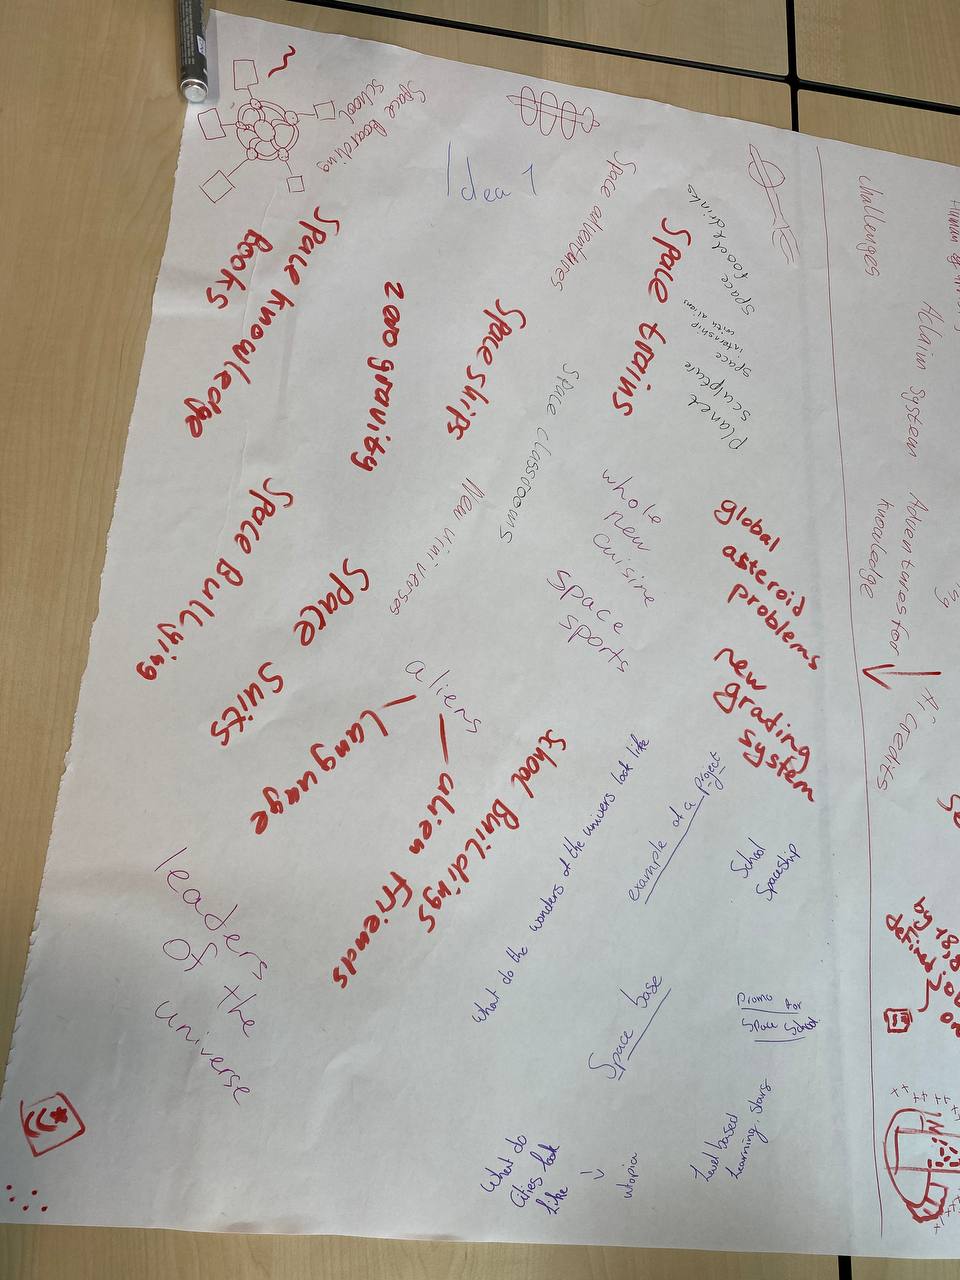 Space Boarding
School
Idea 1
Space adventures
Space
food & drinks
Space
internship
with aliens
planet
sculpture
challenges
Space trains
Space ships
zero gravity
Space knowledge
Books
Space classrooms
New universes
Space Bullying
Space
Suits
whole
new
cuisine
space
sports
global
asteroid
problems
new
grading
system
aliens
Language
alien Friends
School Buildings
What do the wonders of the univers look like
example of a project
School
Spaceship
leaders
of the
universe
Space base
Promo
for
Space
School
What do
Cities look
like
utopia
Level based
Learning. stars
system
Adventures for
knowledge
credits
defined